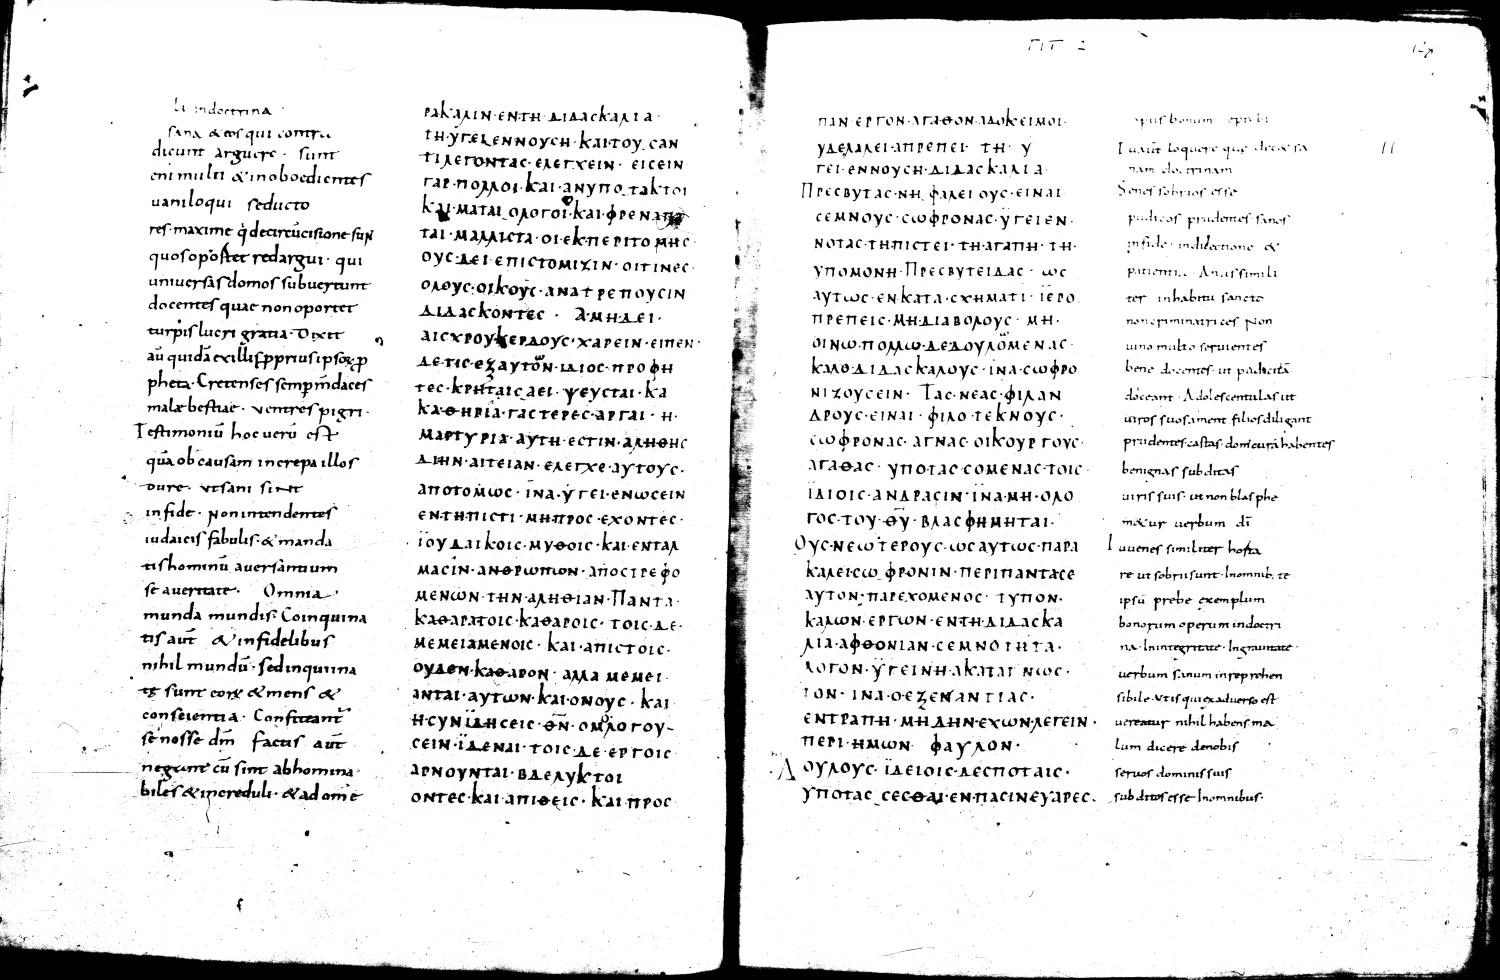 ti indoctrina
sana & eos qui contra
dicunt arguere · sunt
eni multi & inoboedientes
uaniloqui seducto
res·maxime q̇ decircūcisione sun
quos oportet redargui· qui
uniuersas domos subuertunt
docentes quae non oportet
turpis lucri gratia· Dixit
au̅ quidā exillis
pheta· Cretenses semp m̄daces
malae bestiae· ventres pigri·
Testimoniū hoc uerū est
quā ob causam increpa illos
dure· ut sani sint
infide· Non intendentes
iudaicis fabulis·& manda
tis hominū auersantium
se aueritate· Omnia
munda mundis· Coinquina
tis aut̄ & infidelibus
nihil mundū· sed inquina
& mens &
conscientia· Confiteant̄
se nosse dm̅ factis aut̄
negant cū sint abhomina
biles & increduli· & ad ome
ΡΑΚΑΛΙΝ·ΕΝΤΗ·ΔΙΔΑϹΚΑΛΙΑ·
ΤΗ·ΥΓΕΙ·ΕΝΝΟΥϹΗ·ΚΑΙ·ΤΟΥϹ ΑΝ
ΤΙΛΕΓΟΝΤΑϹ·ΕΛΕΓΧΕΙΝ· ΕΙϹΕΙΝ
ΓΑΡ·ΠΟΛΛΟΙ·ΚΑΙ·ΑΝΥΠΟΤΑΚΤΟΙ
ΚΑΙ·ΜΑΤΑΙΟΛΟΓΟΙ·ΚΑΙ·ΦΡΕΝΑΠΑ
ΤΑΙ·ΜΑΛΛΙϹΤΑ·ΟΙ·ΕΚ·ΠΕΡΙΤΟΜΗϹ·
ΟΥϹ·ΔΕΙ·ΕΠΙϹΤΟΜΙΖΙΝ·ΟΙΤΙΝΕϹ·
ΟΛΟΥϹ·ΟΙΚΟΥϹ·ΑΝΑΤΡΕΠΟΥϹΙΝ
ΔΙΔΑϹΚΟΝΤΕϹ · ΑΜΗΔΕΙ·
ΑΙϹΧΡΟΥΚΕΡΔΟΥϹ·ΧΑΡΕΙΝ·ΕΙΠΕΝ·
ΔΕ·ΤΙϹ·ΕΞΑΥΤΩΝ·ΙΔΙΟϹ·ΠΡΟΦΗ
ΤΕϹ·ΚΡΗΤΑΙϹ ΑΕΙ·ΨΕΥϹΤΑΙ·ΚΑ
ΚΑ·ΘΗΡΙΑ·ΓΑϹΤΕΡΕϹ·ΑΡΓΑΙ·Η·
ΜΑΡΤΥΡΙΑ·ΑΥΤΗ·ΕϹΤΙΝ·ΑΛΗΘΗϹ
ΔΙΗΝ·ΑΙΤΕΙΑΝ·ΕΛΕΓΧΕ·ΑΥΤΟΥϹ·
ΑΠΟΤΟΜΩϹ·ΪΝΑ·ΫΓΕΙ·ΕΝΩϹΕΙΝ
ΕΝ·ΤΗ·ΠΙϹΤΙ·ΜΗ·ΠΡΟϹ·ΕΧΟΝΤΕϹ·
ΪΟΥΔΑΙΚΟΙϹ·ΜΥΘΟΙϹ·ΚΑΙ·ΕΝΤΑΛ
ΜΑϹΙΝ·ΑΝΘΡΩΠΩΝ·ΑΠΟϹΤΡΕΦΟ
ΜΕΝΩΝ·ΤΗΝ·ΑΛΗΘΙΑΝ·ΠΑΝΤΑ·
ΚΑΘΑΡΑ·ΤΟΙϹ·ΚΑΘΑΡΟΙϹ·ΤΟΙϹ·ΔΕ·
ΜΕΜΕΙΑΜΕΝΟΙϹ· ΚΑΙ·ΑΠΙϹΤΟΙϹ·
ΟΥΔΕΝ·ΚΑΘΑΡΟΝ·ΑΛΛΑ ΜΕΜΕΙ
ΑΝΤΑΙ·ΑΥΤΩΝ·ΚΑΙ·Ο ΝΟΥϹ· ΚΑΙ
Η·ϹΥΝΪΔΗϹΕΙϹ·Θ̅Ν̅·ΟΜΟΛΟΓΟΥ-
ϹΕΙΝ·ΪΔΕΝΑΙ·ΤΟΙϹ·ΔΕ·ΕΡΓΟΙϹ
ΑΡΝΟΥΝΤΑΙ·ΒΔΕΛΥΚΤΟΙ
ΟΝΤΕϹ·ΚΑΙ·ΑΠΙΘΕΙϹ·ΚΑΙ·ΠΡΟϹ
ΤΙΤ 2
127
ΠΑΝ·ΕΡΓΟΝ·ΑΓΑΘΟΝ·ΑΔΟΚΕΙΜΟΙ·
ΥΔΕΛΑΛΕΙ·ΑΠΡΕΠΕΙ· ΤΗ· Υ
ΓΕΙ·ΕΝΝΟΥϹΗ·ΔΙΔΑϹΚΑΛΙΑ·
ΠΡΕϹΒΥΤΑϹ·ΝΗΦΑΛΕΙΟΥϹ·ΕΙΝΑΙ·
ϹΕΜΝΟΥϹ·ϹΩΦΡΟΝΑϹ·ΫΓΕΙΕΝ·
ΝΟΤΑϹ·ΤΗ·ΠΙϹΤΕΙ·ΤΗ·ΑΓΑΠΗ·ΤΗ·
ΥΠΟΜΟΝΗ·ΠΡΕϹΒΥΤΕΙΔΑϹ· ΩϹ
ΑΥΤΩϹ·ΕΝ·ΚΑΤΑϹΧΗΜΑΤΙ·ΪΕΡΟ
ΠΡΕΠΕΙϹ·ΜΗ·ΔΙΑΒΟΛΟΥϹ· ΜΗ·
ΟΙΝΩ·ΠΟΛΛΩ·ΔΕΔΟΥΛΟΜΕΝΑϹ·
ΚΑΛΟΔΙΔΑϹΚΑΛΟΥϹ·ΪΝΑ·ϹΩΦΡΟ
ΝΙΖΟΥϹΕΙΝ· ΤΑϹ·ΝΕΑϹ·ΦΙΛΑΝ
ΔΡΟΥϹ·ΕΙΝΑΙ·ΦΙΛΟΤΕΚΝΟΥϹ·
ϹΩΦΡΟΝΑϹ·ΑΓΝΑϹ·ΟΙΚΟΥΡΓΟΥϹ·
ΑΓΑΘΑϹ· ΥΠΟΤΑϹϹΟΜΕΝΑϹ·ΤΟΙϹ·
ΪΔΙΟΙϹ·ΑΝΔΡΑϹΙΝ·ΪΝΑ·ΜΗ·ΟΛΟ
ΓΟϹ·ΤΟΥ·Θ̅Υ̅·ΒΛΑϹΦΗΜΗΤΑΙ·
ΟΥϹ·ΝΕΩΤΕΡΟΥϹ·ΩϹΑΥΤΩϹ·ΠΑΡΑ
ΚΑΛΕΙ·ϹΩΦΡΟΝΙΝ·ΠΕΡΙΠΑΝΤΑϹΕ
ΑΥΤΟΝ·ΠΑΡΕΧΟΜΕΝΟϹ· ΤΥΠΟΝ·
ΚΑΛΩΝ·ΕΡΓΩΝ·ΕΝ·ΤΗ·ΔΙΔΑϹΚΑ
ΛΙΑ·ΑΦΘΟΝΙΑΝ·ϹΕΜΝΟΤΗΤΑ·
ΛΟΓΟΝ·ΫΓΕΙΝΗ·ΑΚΑΤΑΓΝΩϹ·
ΤΟΝ· ΙΝΑ·Ο·ΕΞΕΝΑΝΤΙΑϹ·
ΕΝΤΡΑΠΗ·ΜΗΔΗΝ·ΕΧΩΝ·ΛΕΓΕΙΝ·
ΠΕΡΙ·ΗΜΩΝ· ΦΑΥΛΟΝ·
ΔΟΥΛΟΥϹ·ΪΔΕΙΟΙϹ·ΔΕϹΠΟΤΑΙϹ·
ΥΠΟΤΑϹϹΕϹΘΑΙ·ΕΝ·ΠΑϹΙΝ·ΕΥΑΡΕϹ·
opus bonum
Tu aut̄ loquere que decet sa
nam doctrinam
Senes sobrios esse
pudicos prudentes sanos
infide· indilectione &
patientia· Anus simili
ter inhabitu sancto
non criminatrices Non
uino multo seruientes
bene docentes· ut pudicitā
doceant· Adolescentulas ut
uiros suos ament filios diligant
prudentes castas· dom̄ curā habentes
benignas subditas
uiris suis· ut non blasphe
m&ur uerbum dī
Iuuenes similiter horta
re ut sobrii sunt· Inomnib· te
ipsū prebe exemplum
bonorum operum indoctri
na· Inintegritate· Ingrauitate·
uerbum sanum inreprehen
sibile· Vt is qui exaduerso est
uereatur nihil habens ma
lum dicere denobis
seruos dominis suis
subditos esse Inomnibus·